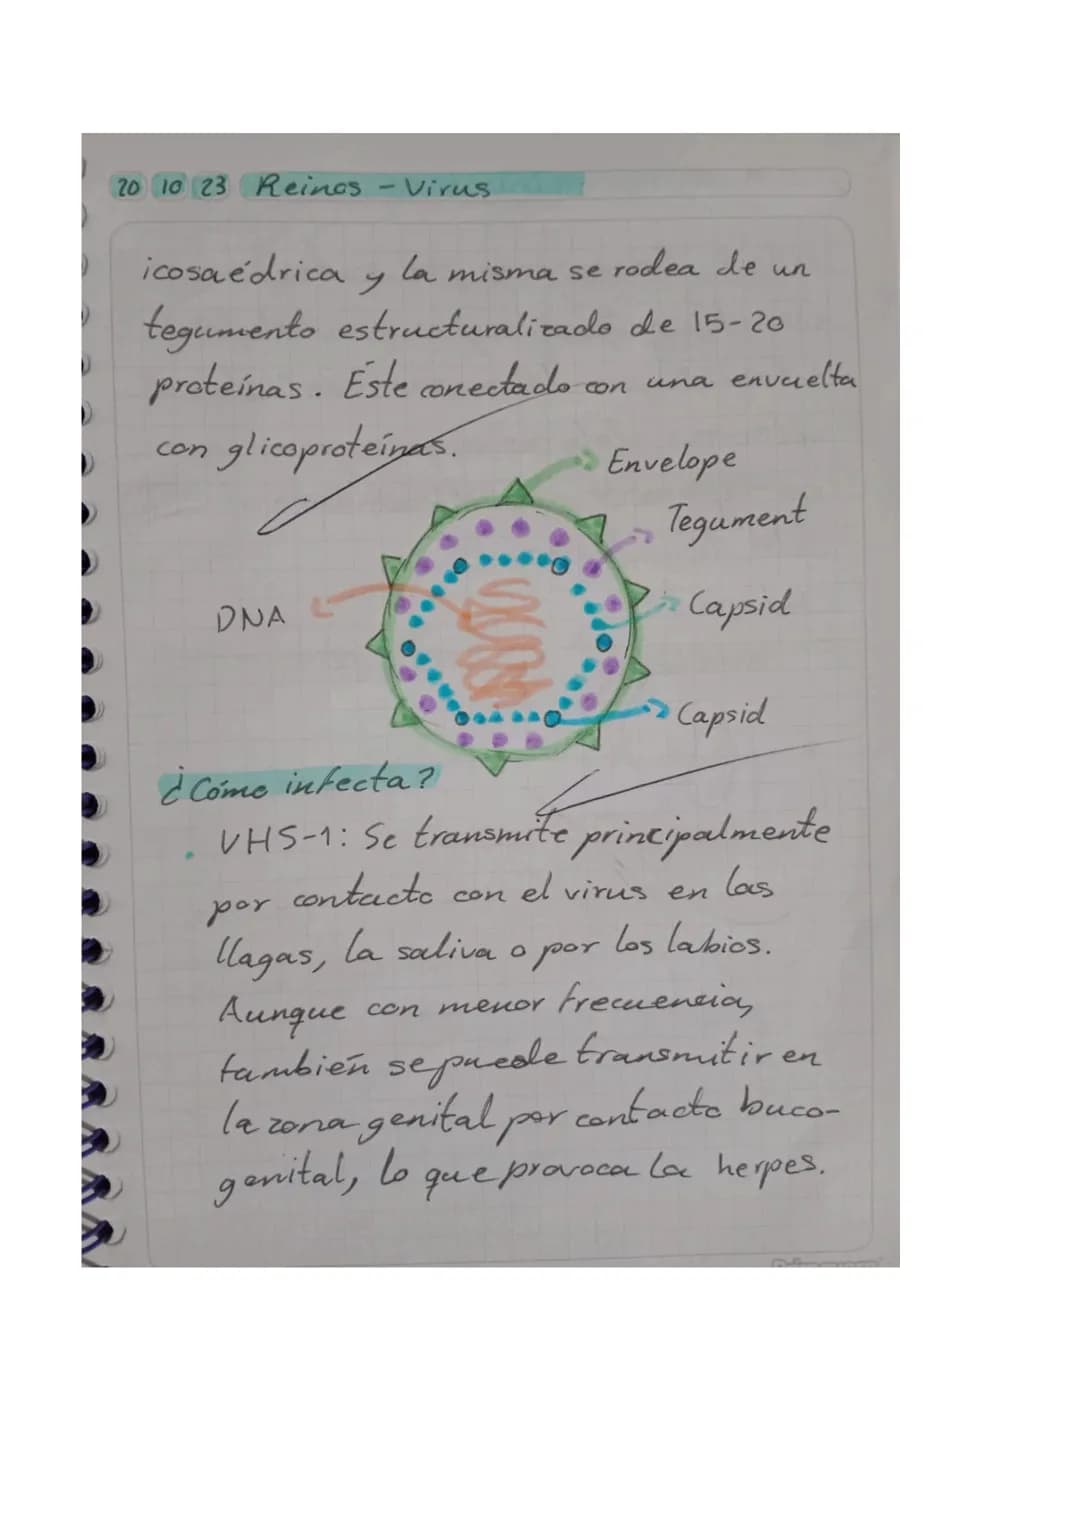 20 10 23 Reinos - Virus
icosaédrica y la misma se rodea de un
tegumento estructuralizado de 15-20
proteínas. Éste conectado con una envuelta
con glicoproteínas.
Envelope
Tegument
DNA
Capsid
Capsid
¿Cómo infecta?
• VHS-1: Se transmite principalmente
por contacto con el virus en las
llagas, la saliva o por los labios.
Aunque con menor frecuencia,
también se puede transmitir en
la zona genital por contacto buco-
genital, lo que provoca la herpes.